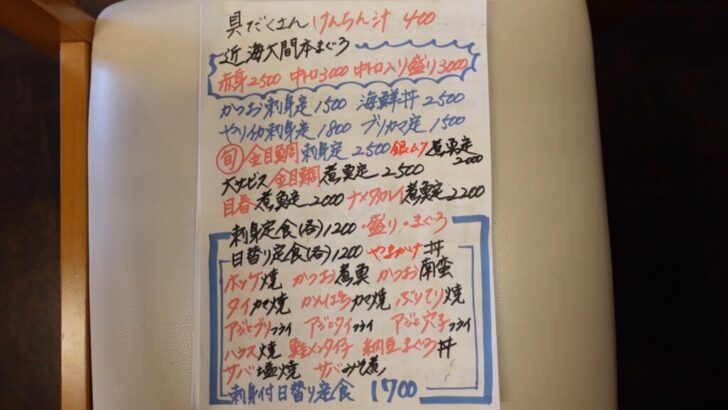 具だくさん けんちん汁 400
近海大間本まぐろ
赤身2500 中トロ3000 中トロ入り盛り3000
かつお刺身定1500 海鮮丼2500
やりイカ刺身定1800 ブリカマ定1500
旬 金目鯛刺身定2500 銀ムツ煮魚定2000
大サービス 金目鯛煮魚定2500
目春煮魚定2000 ナメタカレイ煮魚定2200
刺身定食(各)1200・盛り・まぐろ
日替り定食(各)1200 やまかけ丼
ホッケ焼 かつお煮魚 かつお南蛮
タイカマ焼 カメばちカマ焼 ぶりてり焼
アジとブリフライ アジとタイフライ アジと穴子フライ
ハラス焼 鮭メンタイ子 納豆まぐろ丼
サバ塩焼 サバみそ煮
刺身付日替り定食 1700